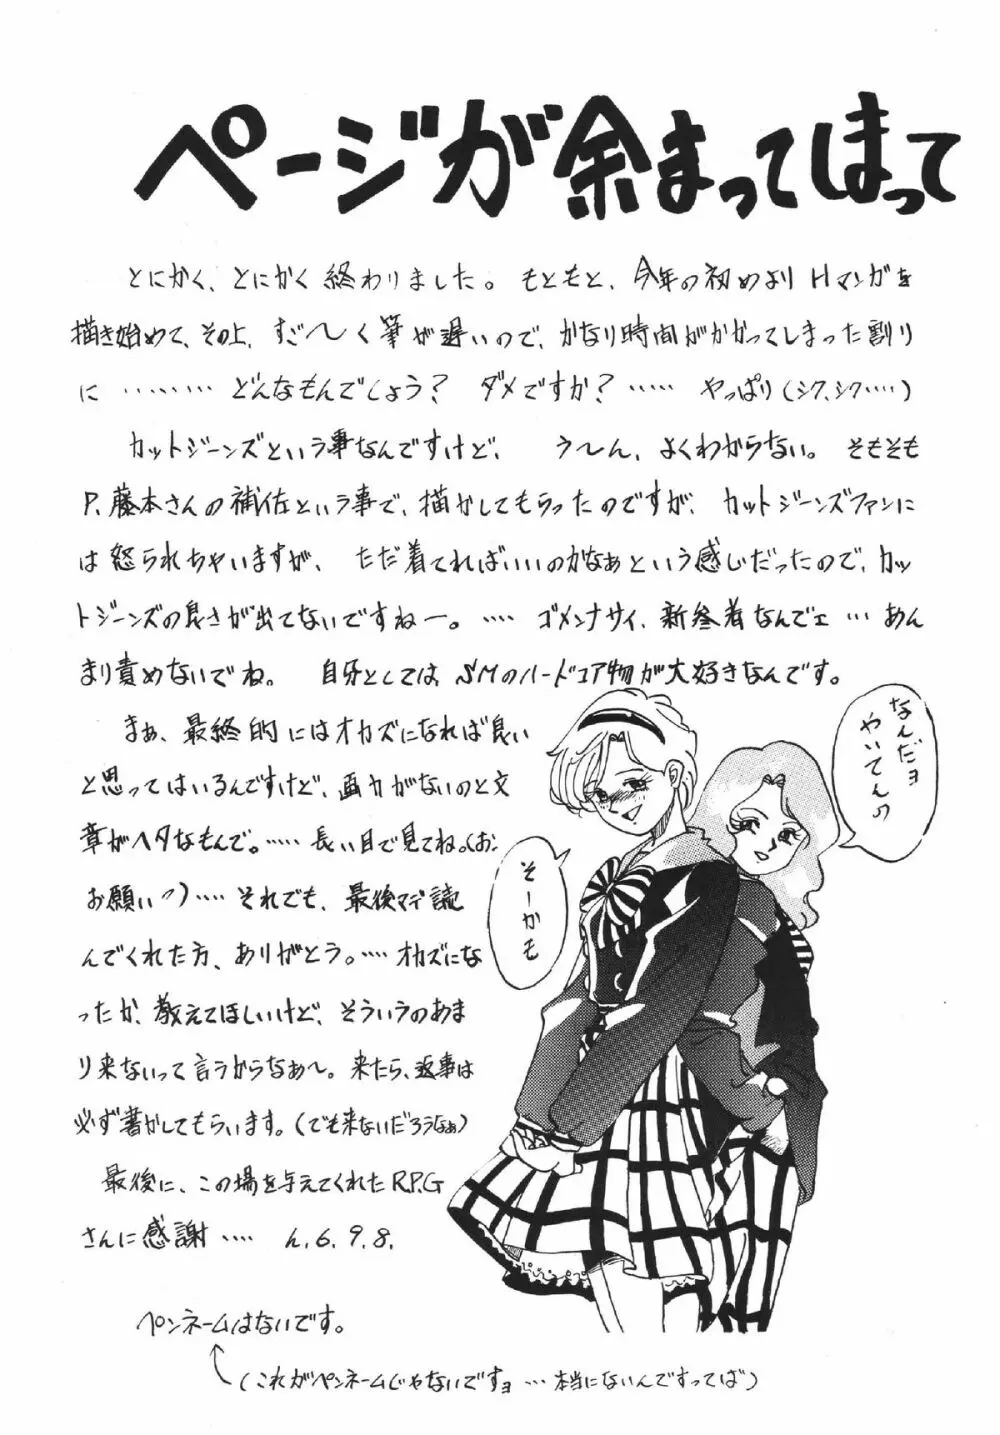 ページが余まってしまって
とにかく、とにかく終わりました。もともと、今年の初めよりHマンガを
描き始めて、その上、すご〜く筆が遅いので、かなり時間がかかってしまった割り
に………どんなもんでしょう？ダメですか？……やっぱり(シク、シク……)
カットジーンズという事なんですけど、う〜ん、よくわからない。そもそも
P.藤本さんの補佐という事で、描かしてもらったのですが、カットジーンズファンに
は怒られちゃいますが、ただ着てればいいのかなぁという感じだったので、カッ
トジーンズの良さが出てないですねー。……ゴメンナサイ、新参者なんでェ…あん
まり責めないでね。自分としては、SMのハードコア物が大好きなんです。
まぁ、最終的にはオカズになれば良い
と思ってはいるんですけど、画力がないのと文
章がヘタなもんで。……長い目で見てね。(お、
お願いっ)……それでも、最後マデ読
んでくれた方、ありがとう。……オカズにな
ったか、教えてほしいけど、そういうのあま
り来ないって言うからなぁ〜。来たら、返事は
必ず書かしてもらいます。(でも来ないだろうなぁ)
最後に、この場を与えてくれたR.P.G
さんに感謝……ん.6.9.8.
なんだョ
やいてんの
そーかも
ペンネームはないです。
(これがペンネームじゃないですョ…本当にないんですってば)